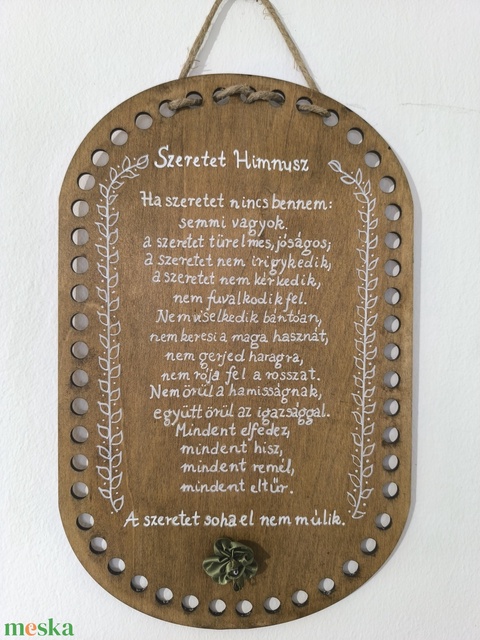 Szeretet Himnusz
Ha szeretet nincs bennem:
semmi vagyok.
a szeretet türelmes, jóságos;
a szeretet nem irigykedik,
a szeretet nem kérkedik,
nem fuvalkodik fel.
Nem viselkedik bántóan,
nem keresi a maga hasznát,
nem gerjed haragra,
nem rója fel a rosszat.
Nem örül a hamisságnak,
együtt örül az igazsággal.
Mindent elfedez,
mindent hisz,
mindent remél,
mindent eltűr.
A szeretet soha el nem múlik.
meska